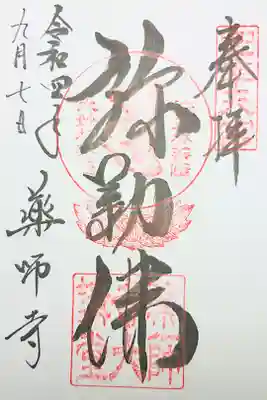 奉拝
弥勒佛
令和四年
九月七日
薬師寺